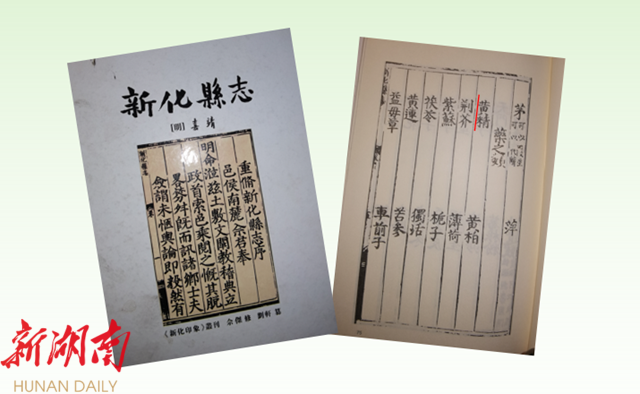 新化縣志
[明] 嘉靖
重脩新化縣志序
邑侯南麓余君奉
明命涖茲土敷文闡教稽典立
政首索邑乘閱之慨其脫
畧芬舛旣而訊諸鄉士夫
僉謂未愜輿論卽毅然有
《新化印象》叢刊 余傑 修 劉軒 纂
茅 萍
藥之類
黄精 黄柏
荊芥 薄荷
紫蘇 梔子
茯苓 獨活
黄連 苦參
益母草 車前子
新湖南
HUNAN DAILY